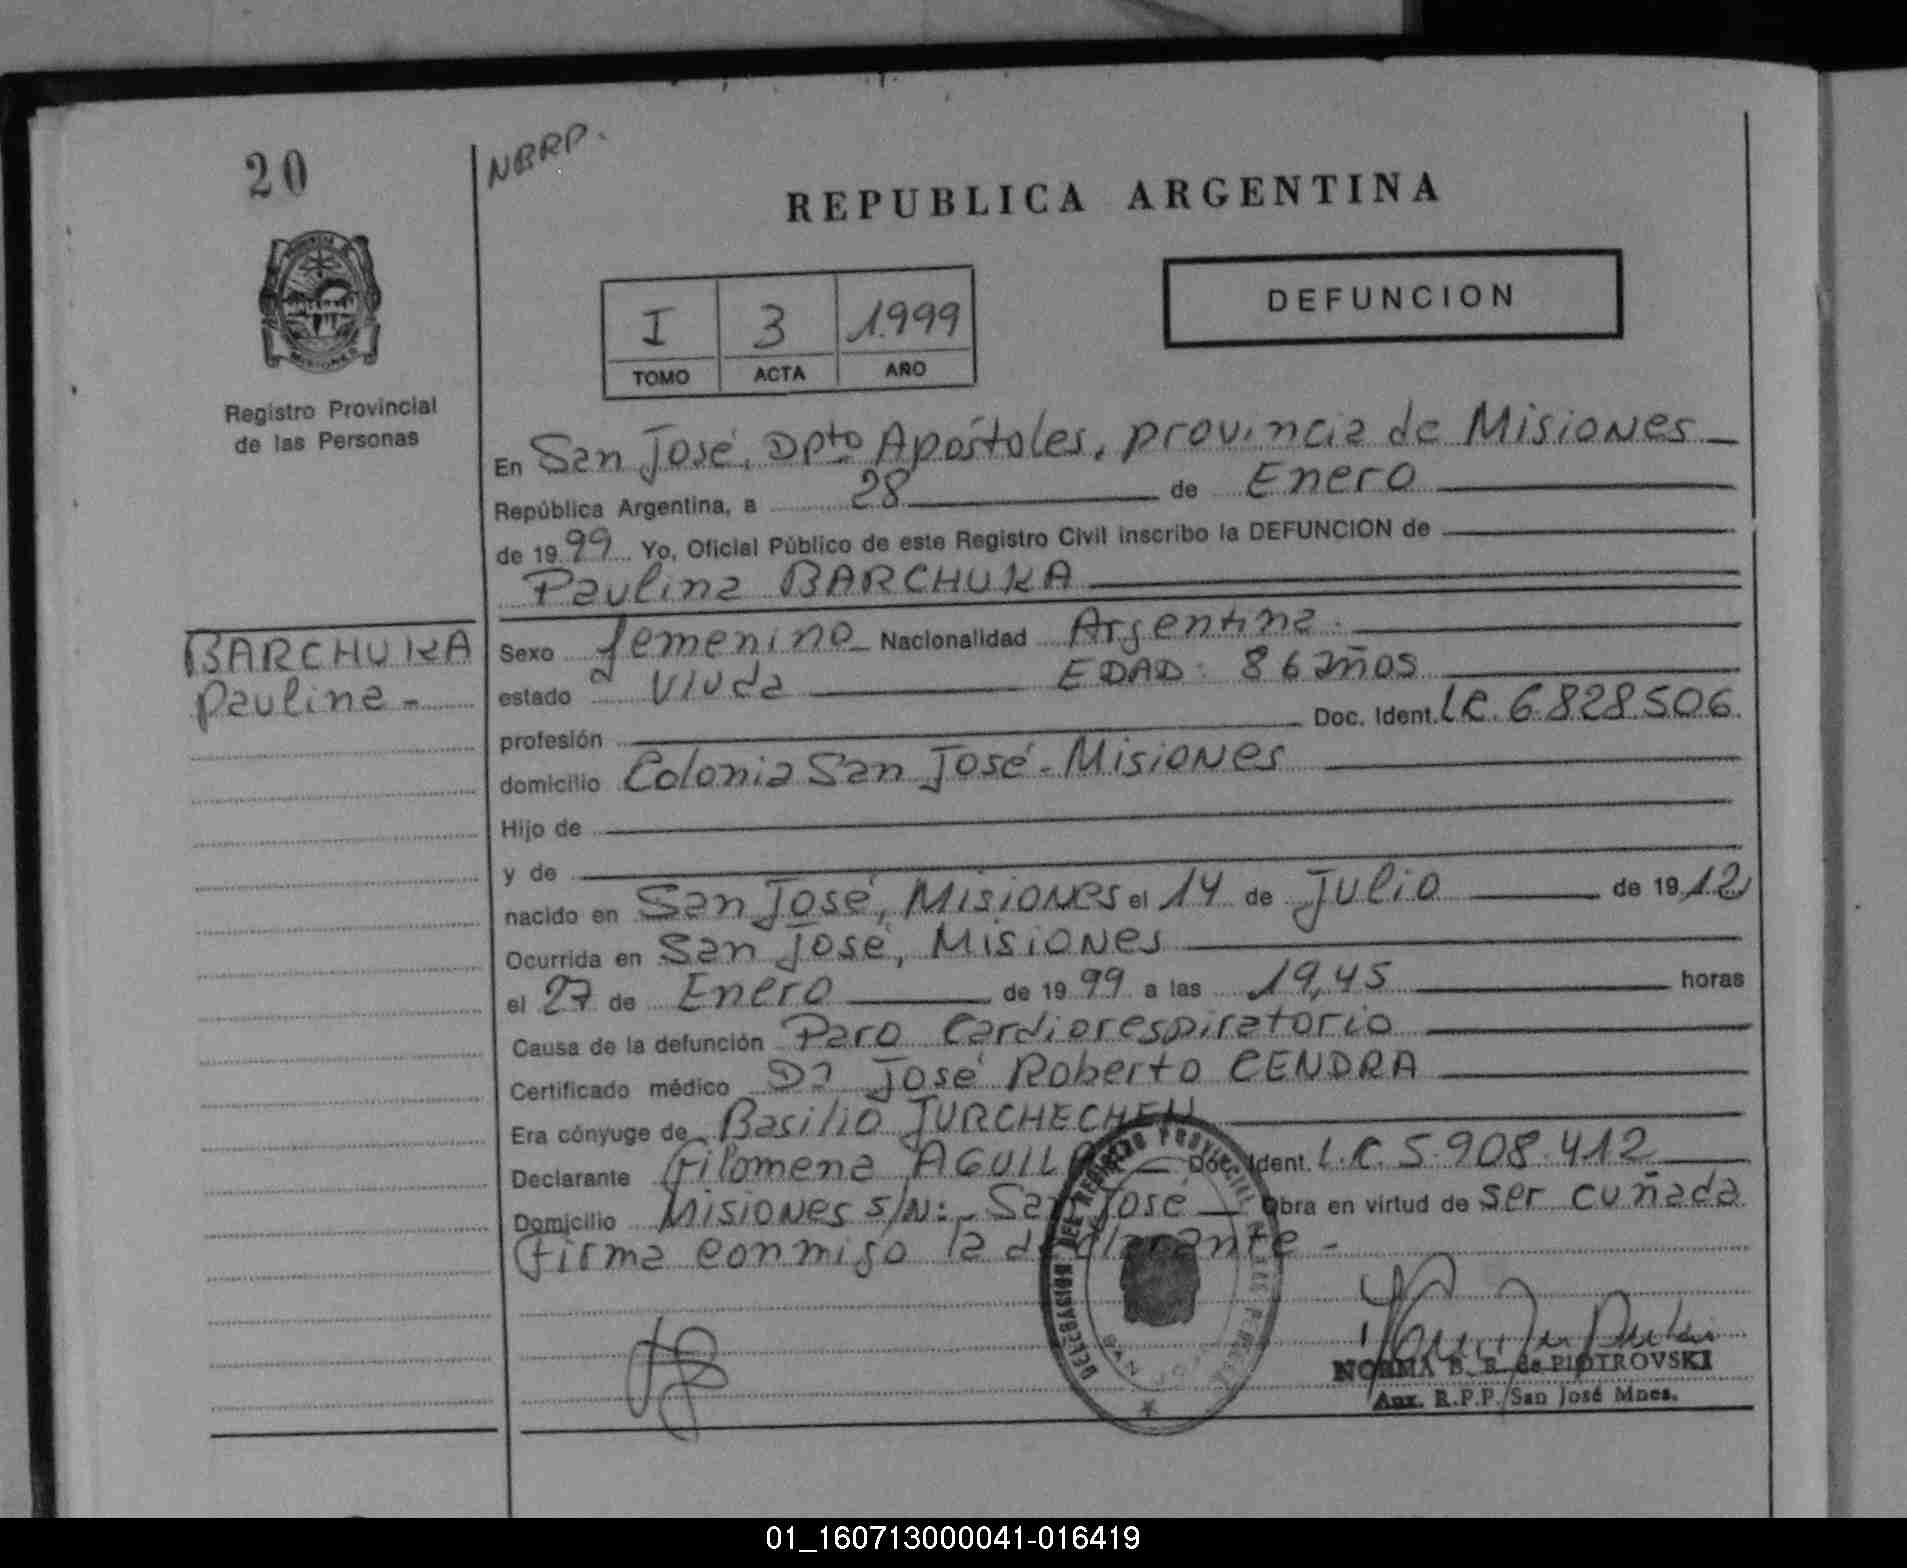 20
NBRP.
REPUBLICA ARGENTINA
MISIONES
Registro Provincial
de las Personas
I 3 1.999
TOMO ACTA AÑO
DEFUNCION
En San José, Dpto Apóstoles, provincia de Misiones
República Argentina, a 28 de Enero
de 1999 Yo, Oficial Público de este Registro Civil inscribo la DEFUNCION de
Paulina BARCHUKA
BARCHUKA
Paulina -
Sexo femenino Nacionalidad Argentina.
estado Viuda EDAD: 86 años
profesión Doc. Ident. L.C. 6.828.506
domicilio Colonia San José - Misiones
Hijo de
y de
nacido en San José, Misiones el 14 de Julio de 1912
Ocurrida en San José, Misiones
el 27 de Enero de 1999 a las 19,45 horas
Causa de la defunción Paro Cardiorespiratorio
Certificado médico Dr José Roberto CENDRA
Era cónyuge de Basilio JURCHECHEN
Declarante Filomena Doc. Ident. L.C. 5.908.412
Domicilio Misiones s/N: - San José Obra en virtud de ser cuñada
Firma conmigo la declarante -
DELEGACION DEL REGISTRO PROVINCIAL
NORMA B. R. de PIOTROVSKI
Aux. R.P.P. San José Mnes.
01_160713000041-016419